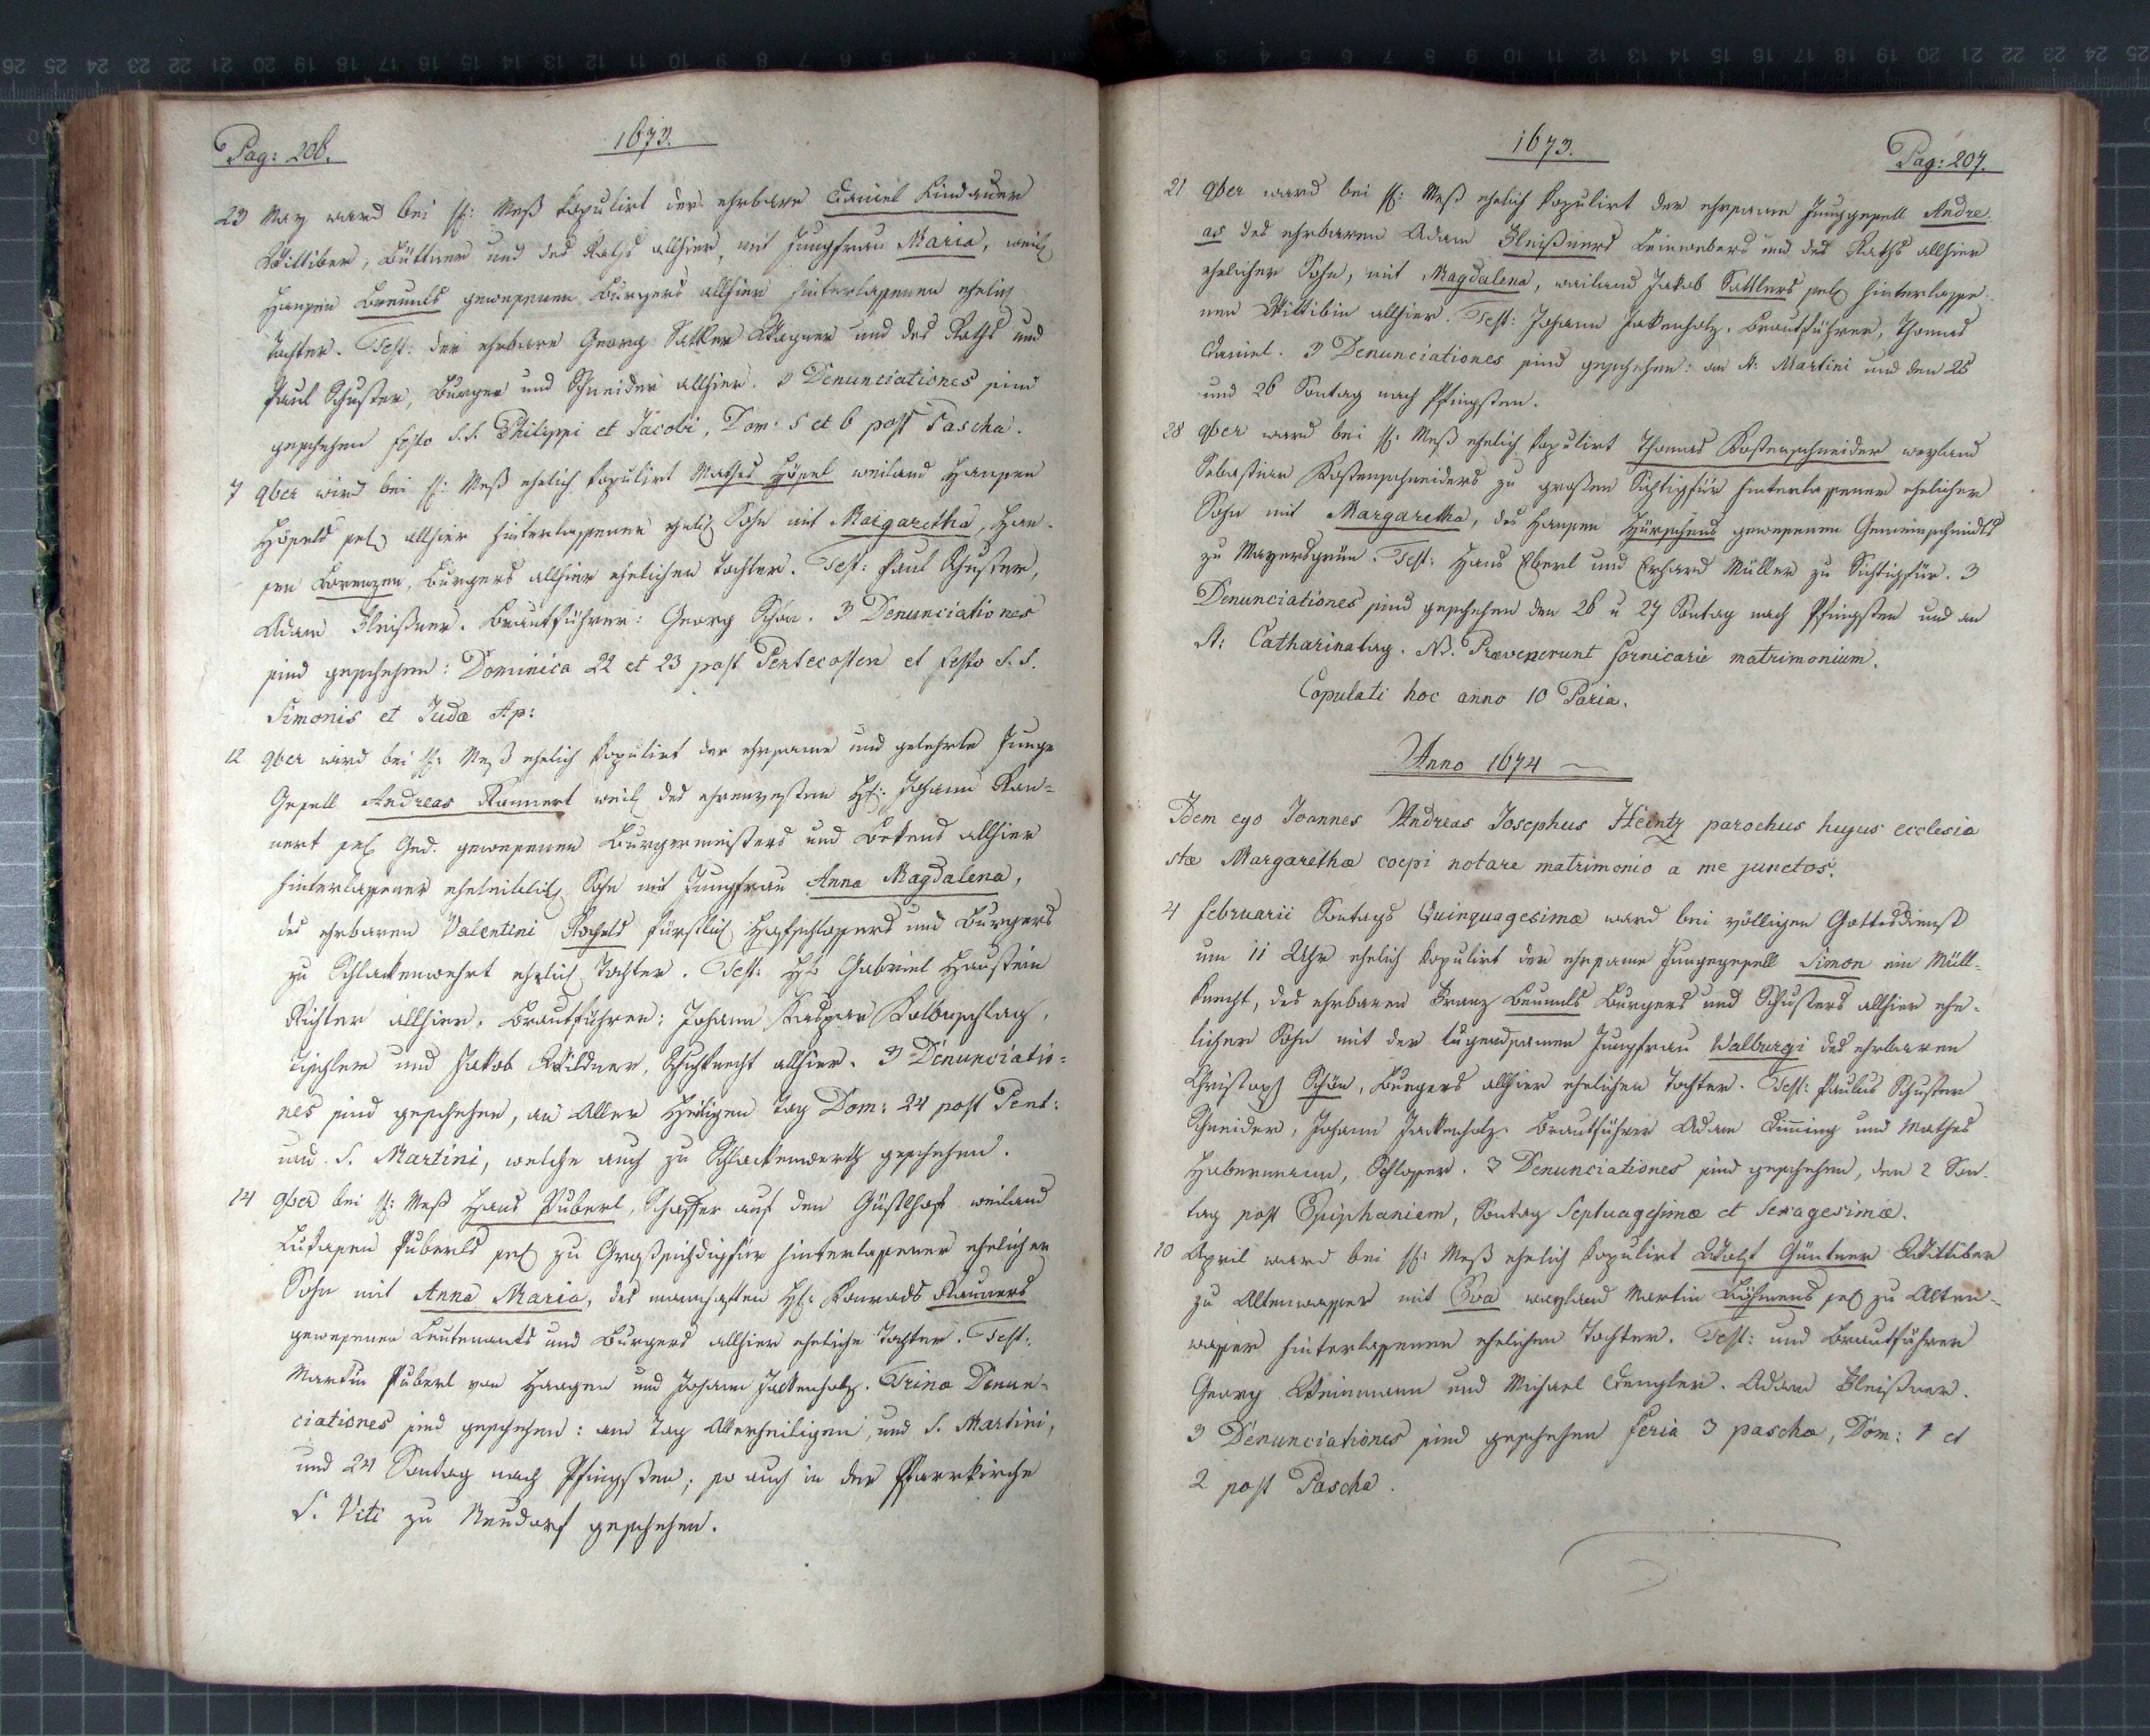 Pag: 206.
1673.
23 May ward bei H: Meß kopulirt der ehrbare Daniel Lindauer
Wittiber, Büttner und des Raths allhier, mit Jungfrau Maria, weil:
Hansen gewesenen Burgers allhier hinterlassenen ehelich
Tochter. Test: der ehrbare Georg Sattler Wagner und des Raths und
Paul Schuster, Burger und Schneider allhier. 3 Denunciationes sind
geschehen festo S. S. Philippi et Jacobi, Dom: 5 et 6 post Pascha.
7 9ber wird bei H: Meß ehelich kopulirt Mathes Höpel weiland Hansen
Höpels sel: allhier hinterlassener ehel: Sohn mit Margaretha, Han-
sen Lorenzen, Burgers allhier ehelichen Tochter. Test: Paul Schuster,
Adam Fleißner. Brautführer: Georg Schön. 3 Denunciationes
sind geschehen: Dominica 22 et 23 post Pentecosten et festo S. S.
Simonis et Juda Ap:
12 9ber wird bei H: Meß ehelich kopulirt der ehrsame und gelehrte Junge
Gesell Andreas weil: des ehrenvesten H: Johann
nert sel: Ged. gewesenen Burgermeisters und Bekens allhier
hinterlassener eheleiblich: Sohn mit Jungfrau Anna Magdalena,
des ehrbaren Valentini fürstlich: Hofschlossers und Burgers
zu Schlackenwehrt ehelich Tochter. Test: H: Gabriel Haustein
Richter allhier. Brautführer: Johann Kaspar
Tischler und Jakob Wildner, Schuhknecht allhier. 3 Denunciatio-
nes sind geschehen, an Aller Heiligen Tag Dom: 24 post Pent:
und S. Martini, welche auch zu Schlackenwerth geschehen.
14 9ber bei H: Meß Hans Puberl, Schaffer auf den weiland
Puberls sel: zu hinterlassener ehelicher
Sohn mit Anna Maria, des mannhaften H: Konrads
gewesenen Leutenants und Burgers allhier eheliche Tochter. Test:
Martin Puberl von Haagen und Johann Jackenholz. Trina Denun-
ciationes sind geschehen: am Tag Allerheiligen, und S. Martini,
und 24 Sontag nach Pfingsten; so auch in der Pfarrkirche
S. Viti zu Neudorf geschehen.
1673.
Pag: 207.
21 9ber ward bei H: Meß ehelich kopulirt der ehrsame Junggesell Andre-
as des ehrbaren Adam Fleißners Leinwebers und des Raths allhier
ehelicher Sohn, mit Magdalena, weiland Jakob Sattlers sel: hinterlasse-
nen Wittibin allhier. Test: Johann Jakenholz. Brautführer, Thomas
Daniel. 3 Denunciationes sind geschehen: an St: Martini und den 25
und 26 Sontag nach Pfingsten.
28 9ber ward bei H: Meß ehelich kopulirt Thomas Kostenschneider weyland
Sebastian Kostenschneiders zu großen hinterlassener ehelicher
Sohn mit Margaretha, des Hansen gewesenen Gemeinschmidts
zu Mayersgrün. Test: Hans Eberl und Erhard Müller zu 3
Denunciationes sind geschehen den 26 u 27 Sontag nach Pfingsten und an
St: Catharinatag. NB. Prævenerunt fornicarie matrimonium.
Copulati hoc anno 10 Paria.
Anno 1674
Idem ego Joannes Andreas Josephus Heintz parochus hujus ecclesia
stæ Margarethæ coepi notare matrimonio a me junctos.
4 Februarii Sontags Quinquagesimæ ward bei völligen Gottesdienst
um 11 Uhr ehelich kopulirt der ehrsame Junggesell Simon ein Müll-
knecht, des ehrbaren Franz Burgers und Schusters allhier ehe-
licher Sohn mit der tugendsamen Jungfrau Walburgi des ehrbaren
Christoph Schön, Burgers allhier ehelichen Tochter. Test: Paulus Schuster
Schneider, Johann Jackenholz. Brautführer Adam und Mathes
Habermann, Schlosser. 3 Denunciationes sind geschehen, den 2 Son-
tag post Epiphaniem, Sontag Septuagesimæ et Sexagesimæ.
10 April ward bei H: Meß ehelich kopulirt Wolf Güntner Wittiber
zu Altenwasser mit Eva weyland Martin Böhmens sel: zu Alten-
wasser hinterlassenen ehelichen Tochter. Test: und Brautführer
Georg Weinmann und Michael Dengler. Adam Fleißner.
3 Denunciationes sind geschehen feria 3 pascha, Dom: 1 et
2 post Pascha.